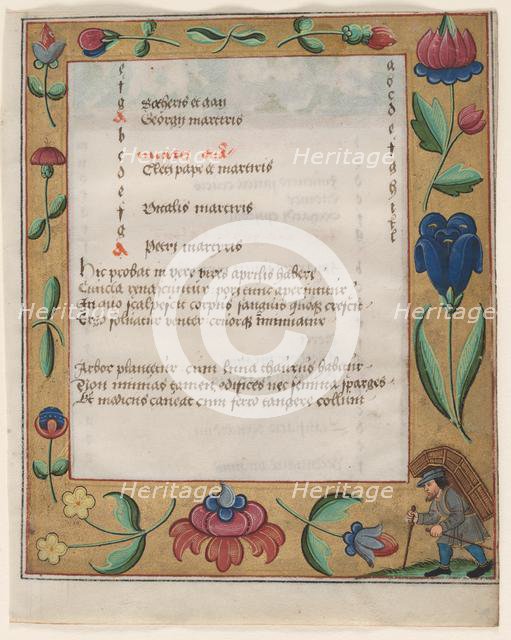 e
f
g Sotheris et gaii
A Georgii martiris
b
marci eva
d Cleti pape et martiris
e
f Vitalis martiris
g
A Petri martiris
a
b
c
d
e
f
g
h
Hic probat in vere vires aprilis habere
Cuncta renascuntur pori tunc aperiuntur
In quo scalpescit corpus sanguis quoque crescit
Ergo soluatur venter cruorque minuatur
Arbor plantetur cum luna thaurus habetur
Non minuas tamen edifices nec semina sparges
Et medicus caueat cum ferro tangere collum
Heritage
Heritage
Heritage
Heritage
Heritage
Heritage
Heritage
Heritage
Heritage